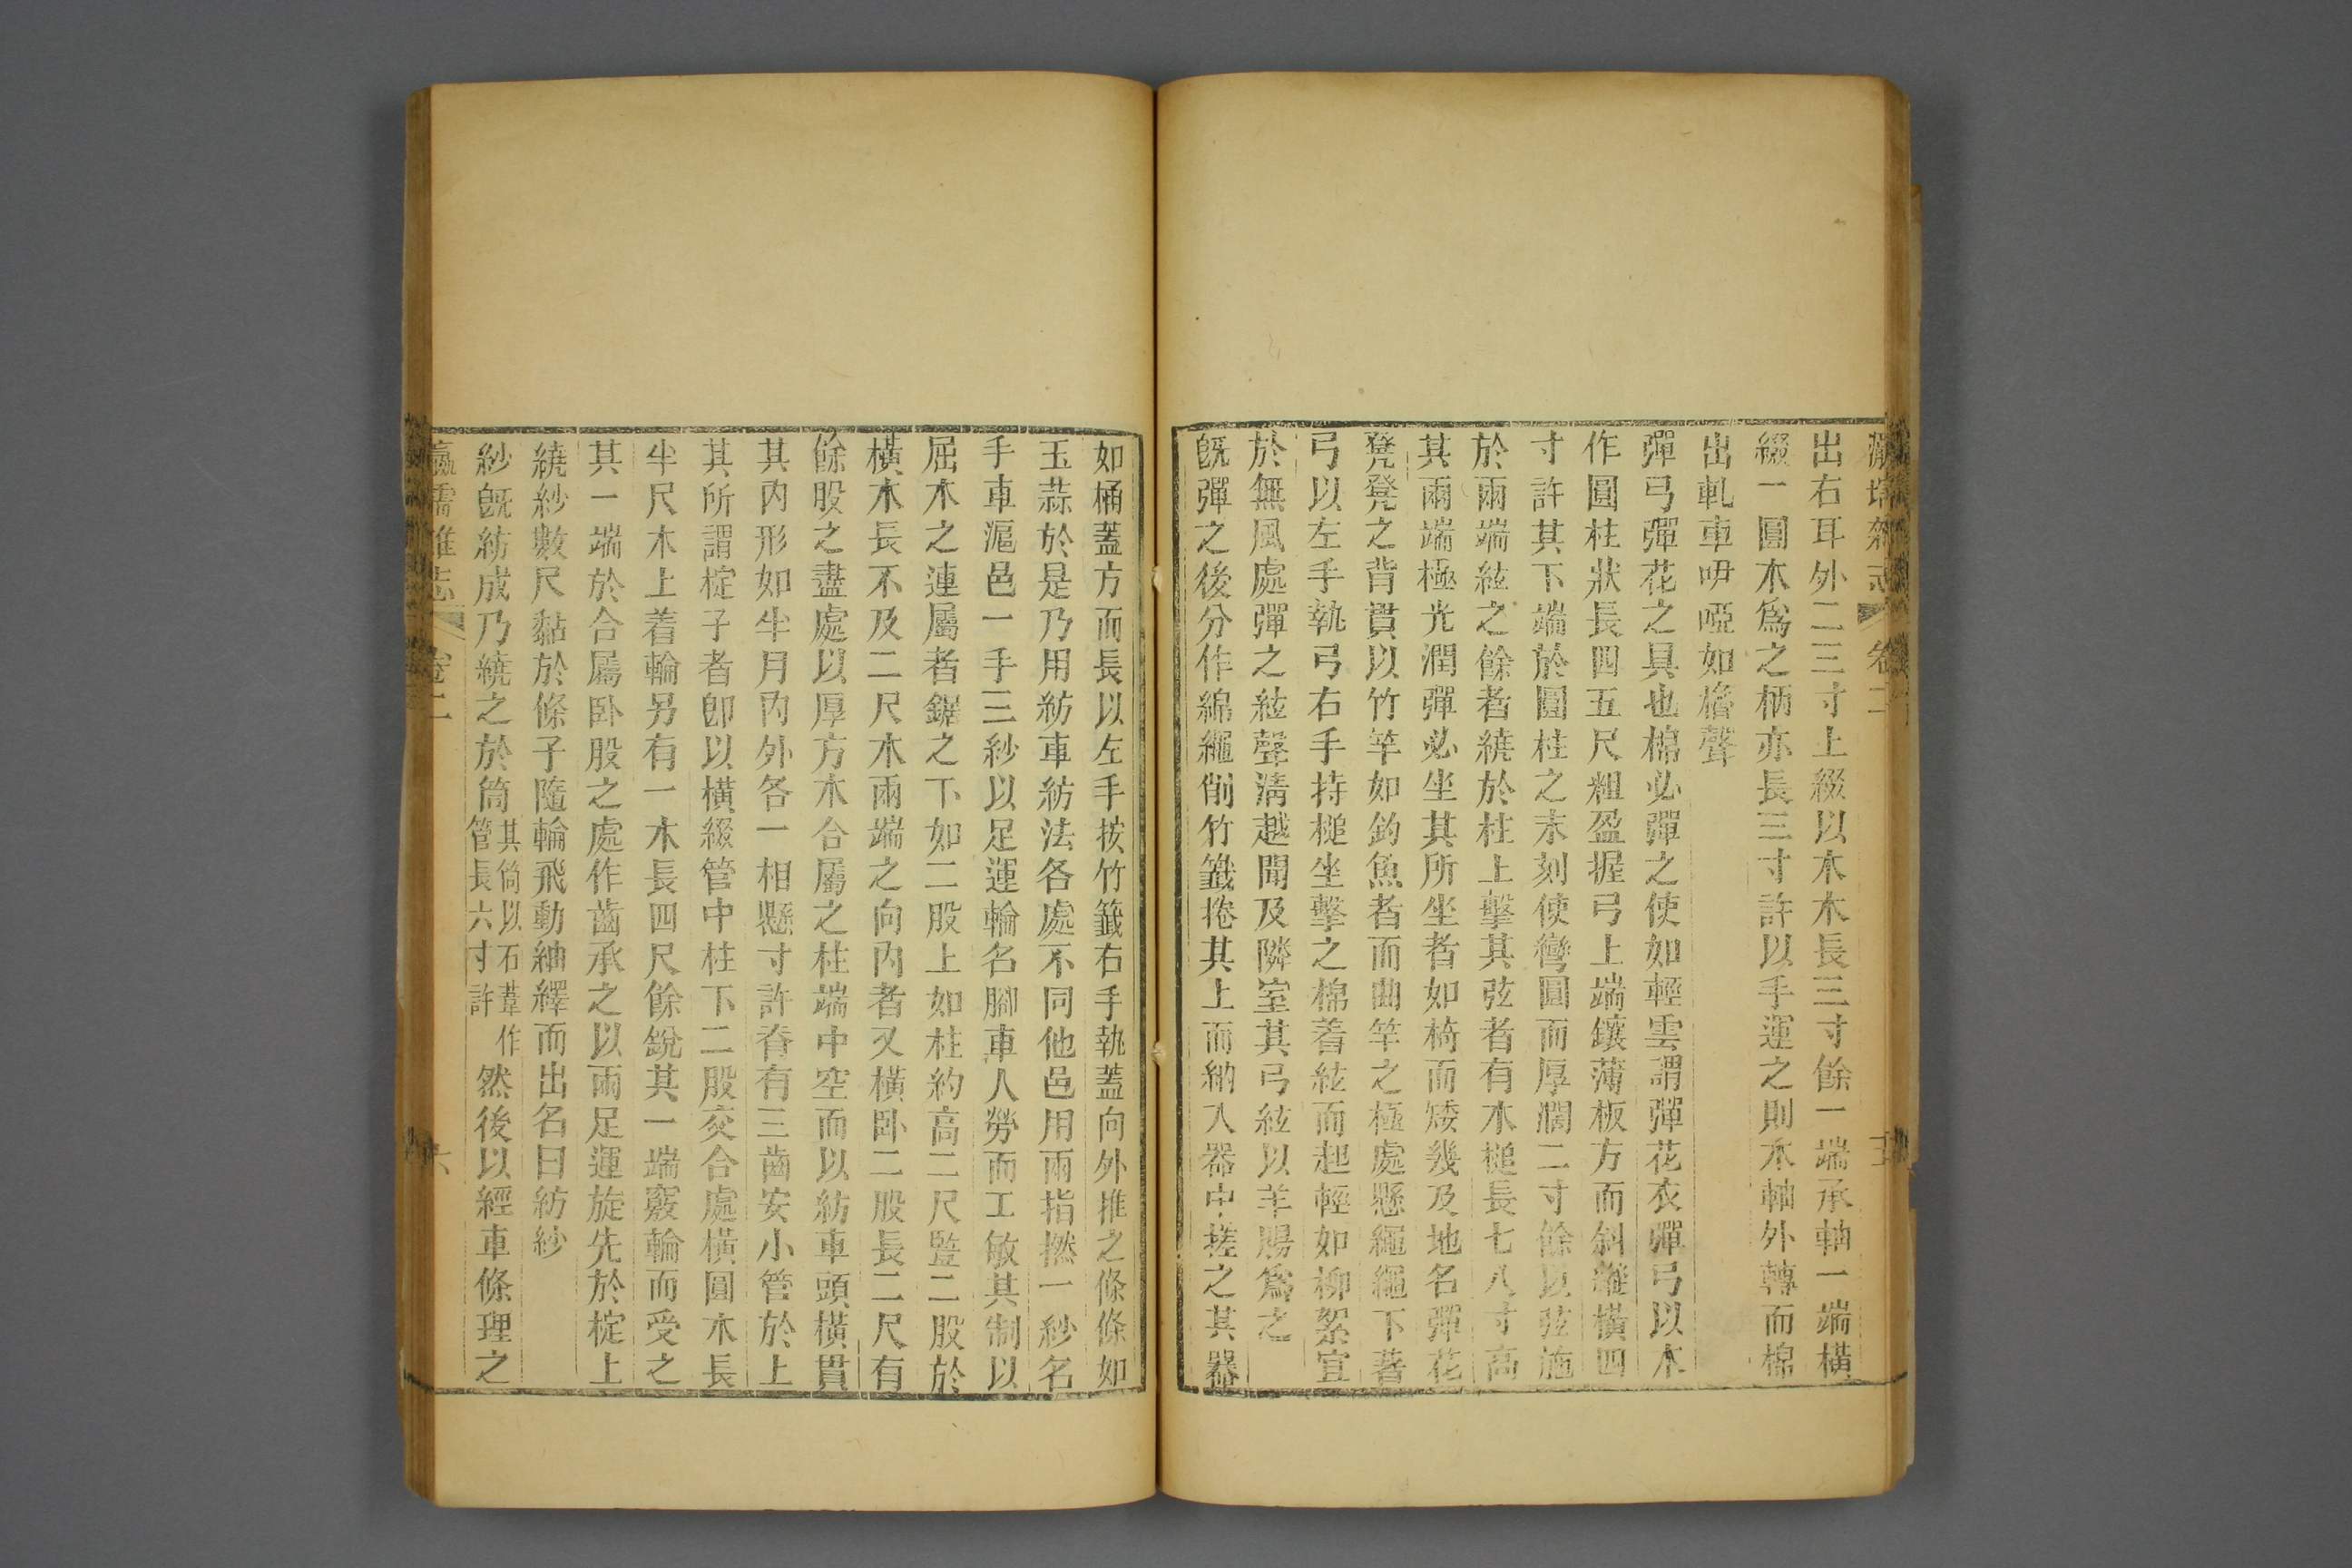 瀛壖雜志 卷二
出右耳外二三寸上綴以木木長三寸餘一端承軸一端橫
綴一圓木爲之柄亦長三寸許以手運之則木軸外轉而棉
出軋車咿啞如櫓聲
彈弓彈花之具也棉必彈之使如輕雲謂彈花衣彈弓以木
作圓柱狀長四五尺粗盈握弓上端鑲薄板方而斜縱橫四
寸許其下端於圓柱之末刻使彎圓而厚濶二寸餘以弦施
於兩端絃之餘者繞於柱上擊其弦者有木槌長七八寸高
其兩端極光潤彈必坐其所坐者如椅而矮幾及地名彈花
凳凳之背貫以竹竿如釣魚者而曲竿之極處懸繩繩下著
弓以左手執弓右手持槌坐擊之棉着絃而起輕如柳絮宜
於無風處彈之絃聲清越聞及隣室其弓絃以羊腸爲之
旣彈之後分作綿繩削竹籤捲其上而納入器中搓之其器
如桶蓋方而長以左手按竹籤右手執蓋向外推之條條如
玉蒜於是乃用紡車紡法各處不同他邑用兩指撚一紗名
手車滬邑一手三紗以足運輪名腳車人勞而工敏其制以
屈木之連屬者鋸之下如二股上如柱約高二尺豎二股於
橫木長不及二尺木兩端之向內者又橫卧二股長二尺有
餘股之盡處以厚方木合屬之柱端中空而以紡車頭橫貫
其內形如半月內外各一相懸寸許脊有三齒安小管於上
其所謂椗子者卽以橫綴管中柱下二股交合處橫圓木長
半尺木上着輪另有一木長四尺餘銳其一端竅輪而受之
其一端於合屬卧股之處作齒承之以兩足運旋先於椗上
繞紗數尺黏於條子隨輪飛動紬繹而出名曰紡紗
紗旣紡成乃繞之於筒其筒以石葦作管長六寸許然後以經車條理之
瀛壖雜志 卷二 六